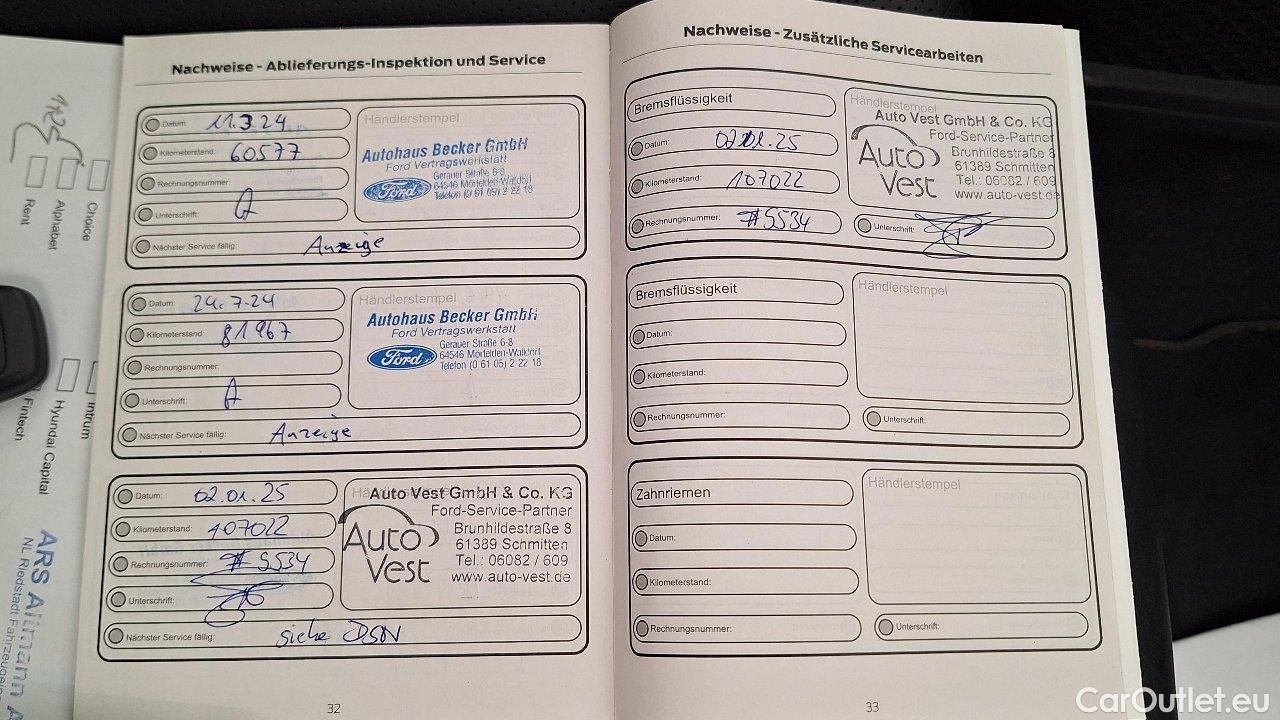 Nachweise - Ablieferungs-Inspektion und Service
Datum: 11.3.24
Kilometerstand: 60577
Rechnungsnummer:
Unterschrift:
Nächster Service fällig: Anzeige
Händlerstempel
Autohaus Becker GmbH
Ford Vertragswerkstatt
Ford
Gerauer Straße 6-8
64546 Mörfelden-Walldorf
Telefon (0 61 05) 2 22 18
Datum: 29.7.24
Kilometerstand: 81967
Rechnungsnummer:
Unterschrift:
Nächster Service fällig: Anzeige
Händlerstempel
Autohaus Becker GmbH
Ford Vertragswerkstatt
Ford
Gerauer Straße 6-8
64546 Mörfelden-Walldorf
Telefon (0 61 05) 2 22 18
Datum: 02.01.25
Kilometerstand: 107022
Rechnungsnummer: #5534
Unterschrift:
Nächster Service fällig: siehe
Auto Vest GmbH & Co. KG
Ford-Service-Partner
Auto Vest
Brunhildestraße 8
61389 Schmitten
Tel.: 06082 / 609
www.auto-vest.de
32
Nachweise - Zusätzliche Servicearbeiten
Bremsflüssigkeit
Datum: 02.01.25
Kilometerstand: 107022
Rechnungsnummer: #5534
Unterschrift:
Händlerstempel
Auto Vest GmbH & Co. KG
Ford-Service-Partner
Auto Vest
Brunhildestraße 8
61389 Schmitten
Tel.: 06082 / 609
www.auto-vest.de
Bremsflüssigkeit
Datum:
Kilometerstand:
Rechnungsnummer:
Unterschrift:
Händlerstempel
Zahnriemen
Datum:
Kilometerstand:
Rechnungsnummer:
Unterschrift:
Händlerstempel
33
Choice
Alphabet
Rent
Intrum
Hyundai Capital
Fintech
ARS Altmann
NL Riedstadt
CarOutlet.eu